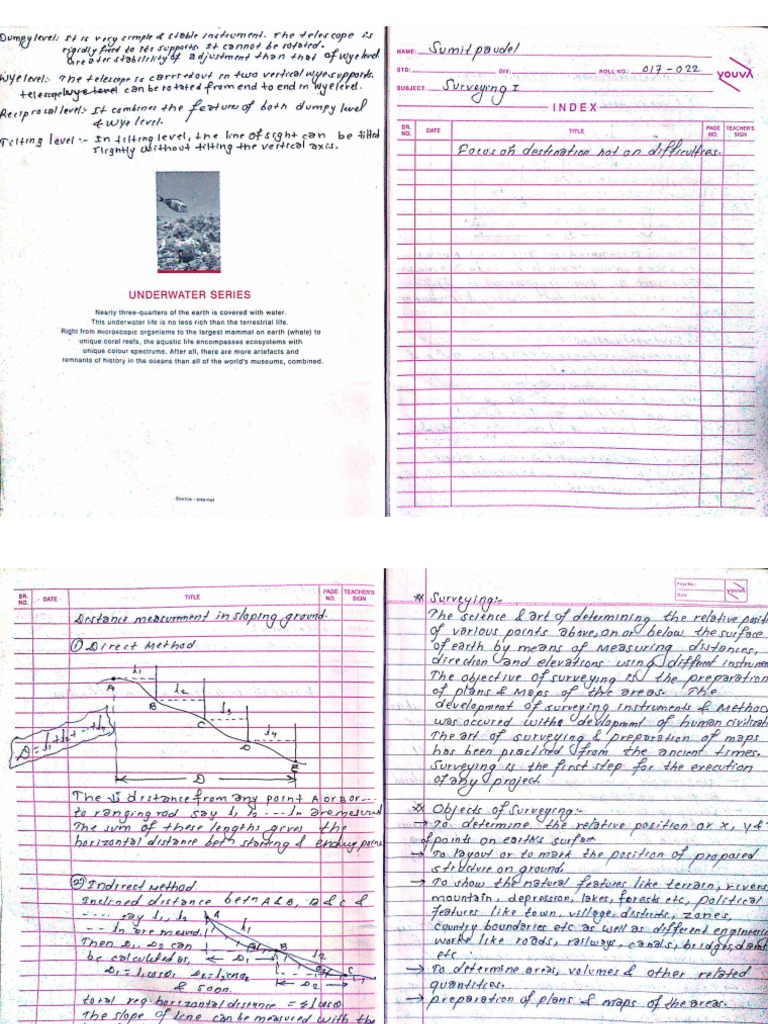 Dumpy level: It is very simple & stable instrument. The telescope is
rigidly fixed to its supports. It cannot be rotated.
Greater stability of adjustment than that of wye level
Wye level: The telescope is carried out in two vertical wye supports.
telescope can be rotated from end to end in wye level.
Reciprocal level:- It combines the features of both dumpy level
& wye level.
Tilting level:- In tilting level, the line of sight can be tilted
slightly without tilting the vertical axis.
UNDERWATER SERIES
Nearly three-quarters of the earth is covered with water.
This underwater life is no less rich than the terrestrial life.
Right from microscopic organisms to the largest mammal on earth (whale) to
unique coral reefs, the aquatic life encompasses ecosystems with
unique colour spectrums. After all, there are more artefacts and
remnants of history in the oceans than all of the world's museums, combined.
Source - Internet
NAME: Sumit paudel
STD: DIV. ROLL NO. 017-022
youva
SUBJECT: Surveying I
INDEX
SR. NO. DATE TITLE PAGE NO. TEACHER'S SIGN
Focus on destination not on difficulties.
SR. NO. DATE TITLE PAGE NO. TEACHER'S SIGN
Distance measurement in sloping ground.
① Direct Method
l1
A
l2
B
l3
C
l4
D
E
D = l1+l2+
D
The distance from any point A or B or ...
to ranging rod say l1, l2 ---- ln are measured
The sum of these lengths gives the
horizontal distance betn starting & ending points
② Indirect Method
Inclined distance betn A & B, B & C &
---- say l1, l2
--- ln are measured.
Then D1, D2 can
be calculated as,
D1 = l1cosθ1 D2 = l2cosθ2
& soon.
A
l1
B
l2
C
D1
D2
total req. horizontal distance = Σlcosθ.
The slope of line can be measured with the
Page No.
Date
youva
** Surveying:-
The science & art of determining the relative positi
of various points above, on or below the surface
of earth by means of measuring distances,
direction and elevations using different instrumen
The objective of surveying is the preparation
of plans & maps of the areas. The
development of surveying instruments & method
was occured withe devlopment of human civilizati
The art of surveying & preparation of maps
has been practiced from the ancient times.
Surveying is the first step for the execution
of any project.
** Objects of Surveying:-
→ To determine the relative position or x, y &
of points on earth's surface
→ To layout or to mark the position of proposed
structure on ground.
→ To show the natural features like terrain, rivers,
mountain, depression, lakes, forests etc, political
features like town, village, districts, zones,
country boundaries etc as well as different engineeri
works like roads, railways, canals, bridges, dams
etc.
→ To determine areas, volumes & other related
quantities.
→ preparation of plans & maps of the areas.